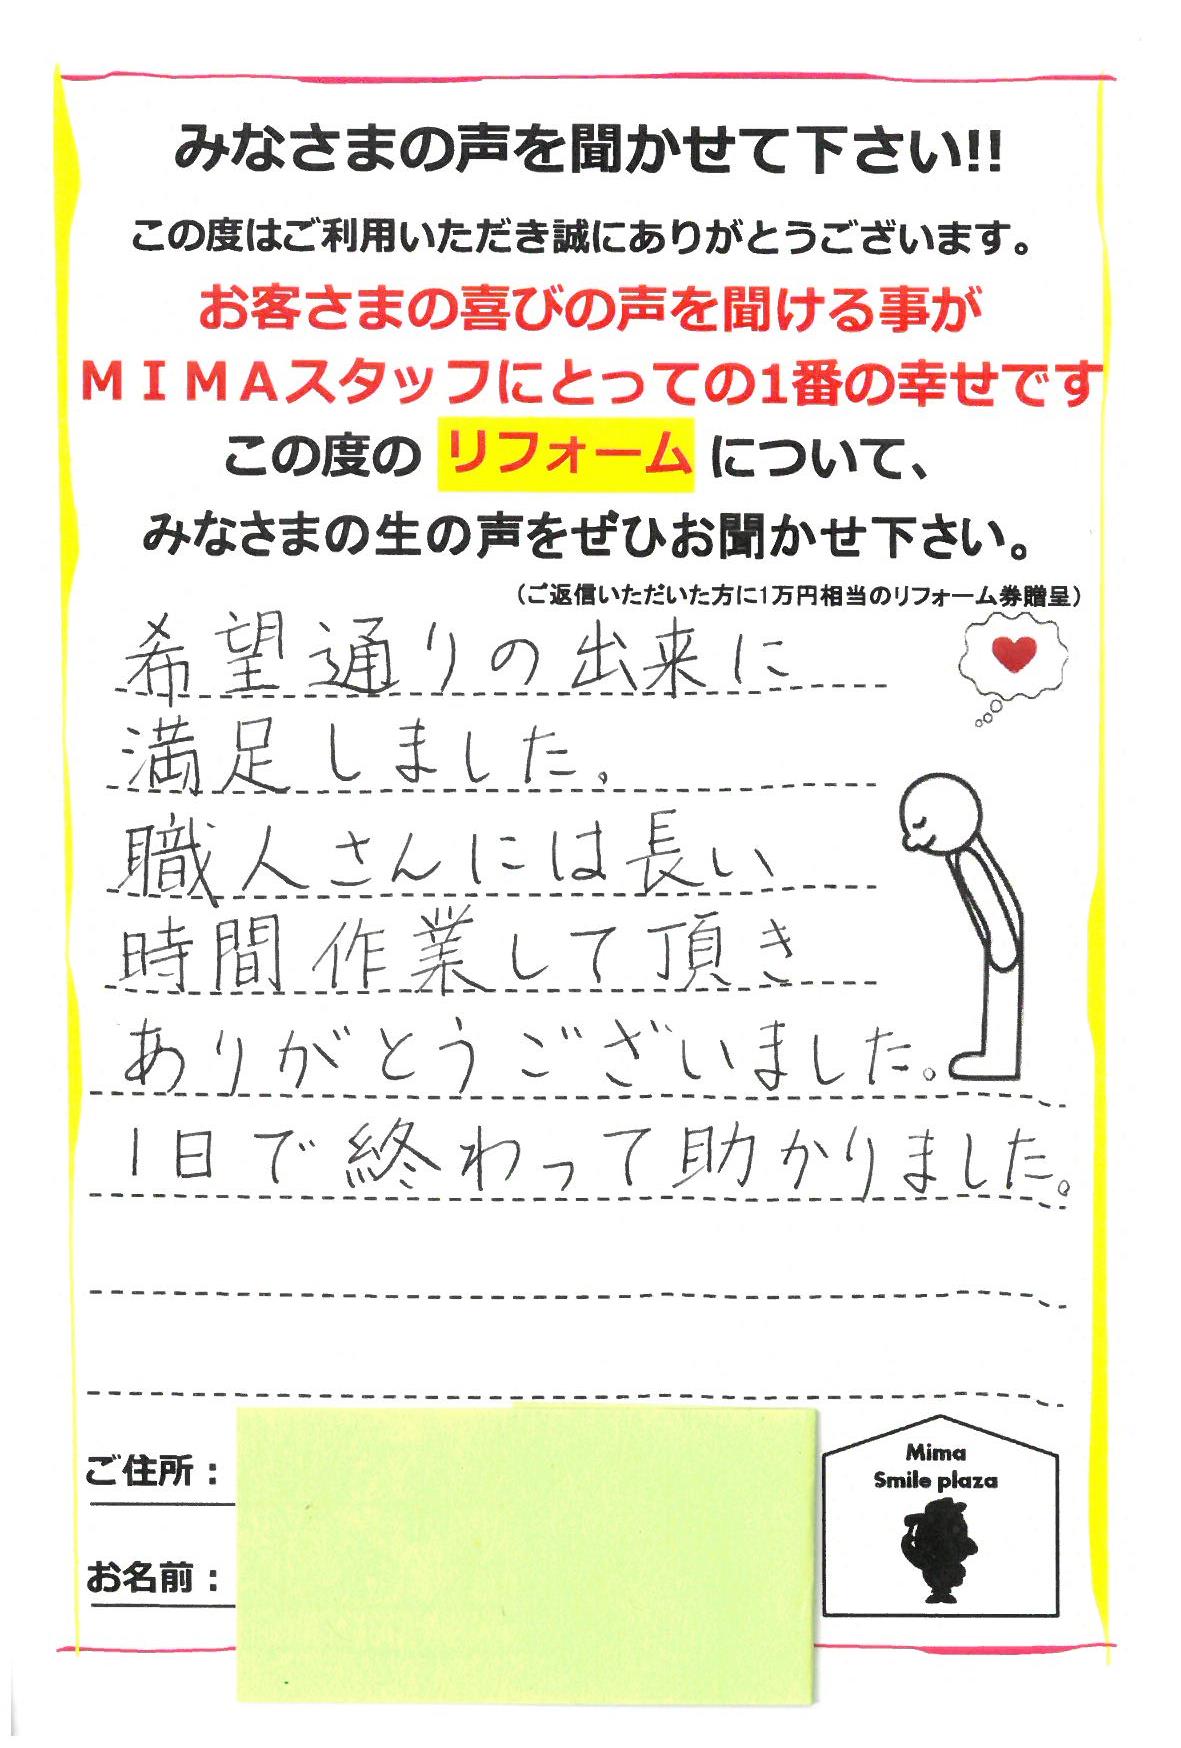 みなさまの声を聞かせて下さい!!
この度はご利用いただき誠にありがとうございます。
お客さまの喜びの声を聞ける事が
ＭＩＭＡスタッフにとっての1番の幸せです
この度の リフォーム について、
みなさまの生の声をぜひお聞かせ下さい。
（ご返信いただいた方に1万円相当のリフォーム券贈呈）
希望通りの出来に
満足しました。
職人さんには長い
時間作業して頂き
ありがとうございました。
1日で終わって助かりました。
ご住所：
お名前：
Mima
Smile plaza